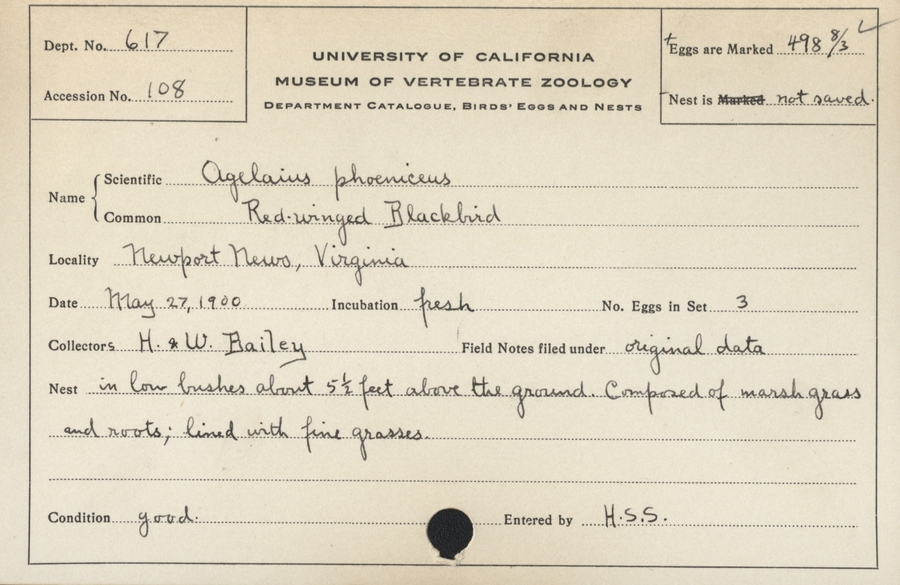 Dept. No. 617
Accession No. 108
UNIVERSITY OF CALIFORNIA
MUSEUM OF VERTEBRATE ZOOLOGY
DEPARTMENT CATALOGUE, BIRDS' EGGS AND NESTS
+Eggs are Marked 498 8/3 ✓
-Nest is Marked not saved.
Name
Scientific Agelaius phoeniceus
Common Red-winged Blackbird
Locality Newport News, Virginia
Date May 27, 1900 Incubation fresh No. Eggs in Set 3
Collectors H. & W. Bailey Field Notes filed under original data
Nest in low bushes about 5½ feet above the ground. Composed of marsh grass
and roots; lined with fine grasses.
Condition good. Entered by H.S.S.